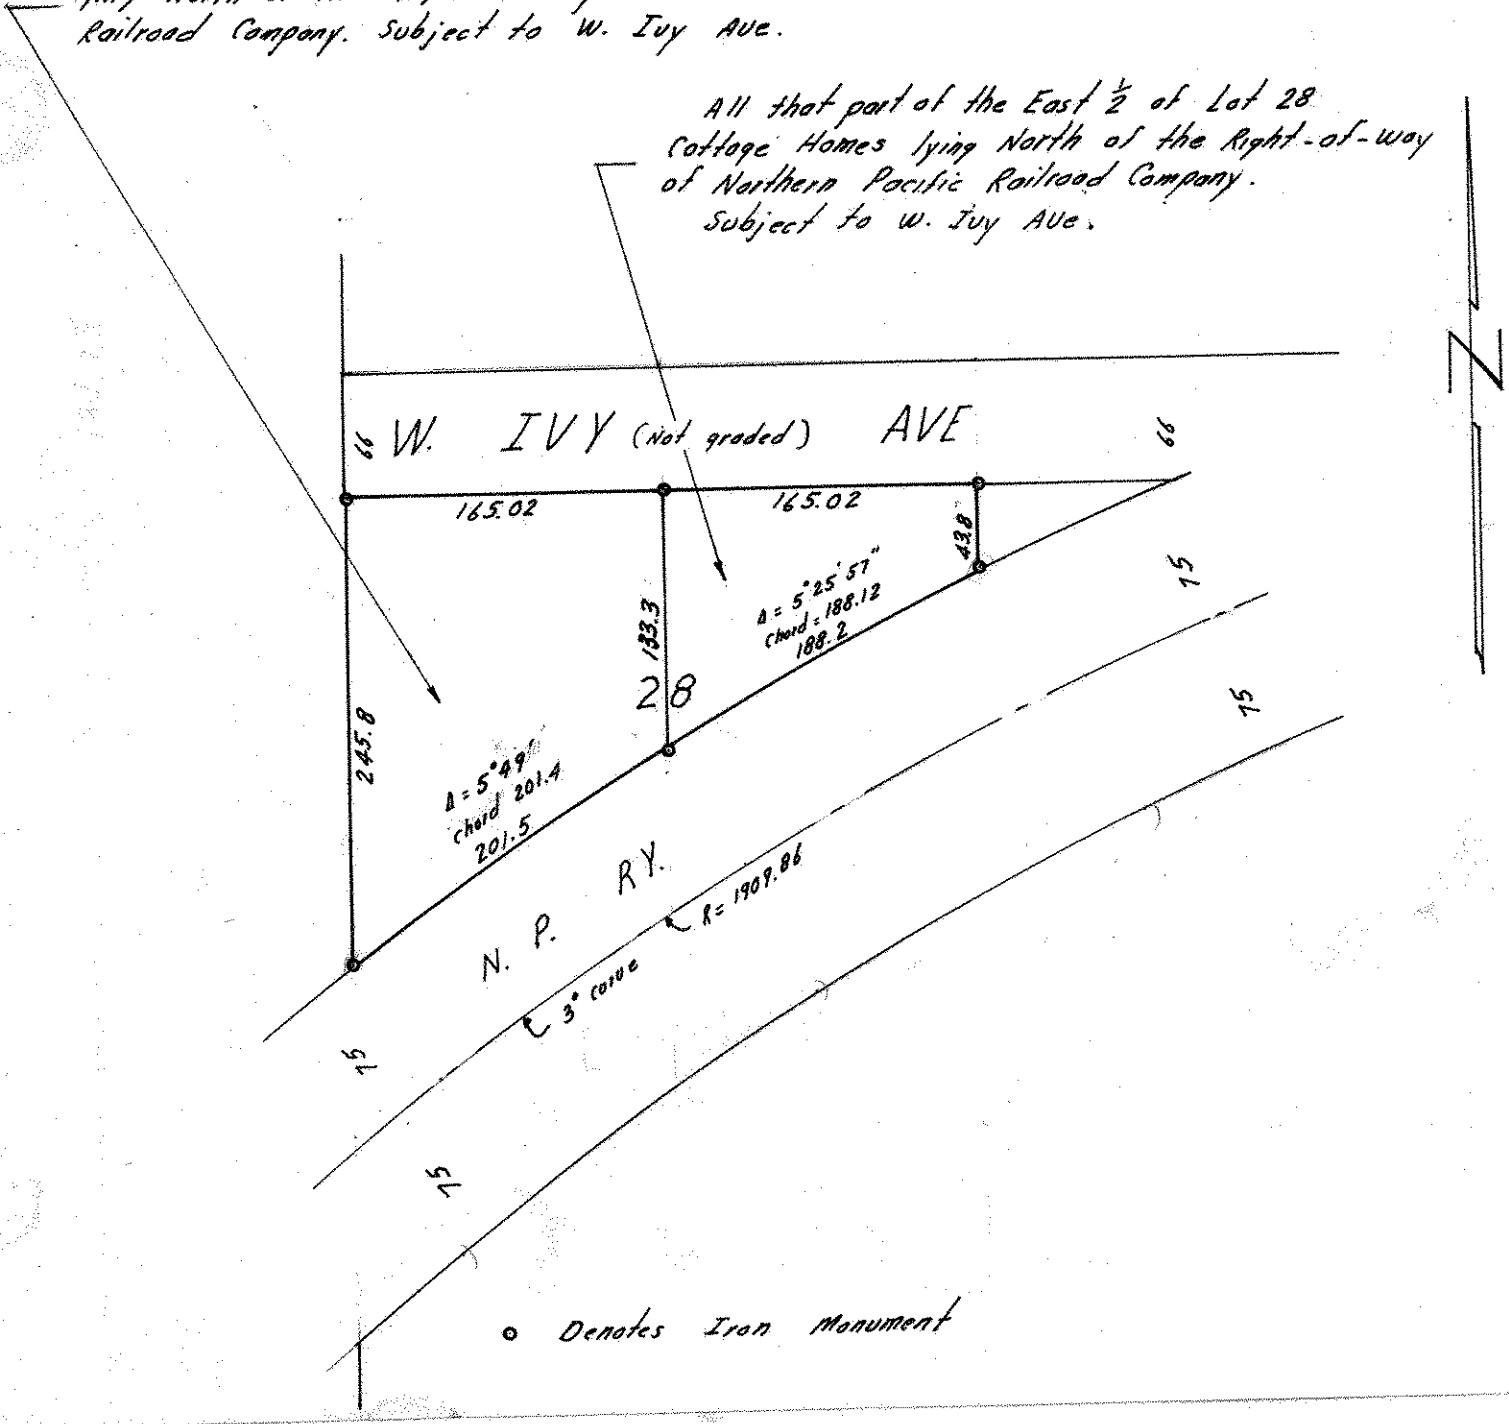 Railroad Company. Subject to W. Ivy Ave.
All that part of the East ½ of Lot 28
Cottage Homes lying North of the Right-of-way
of Northern Pacific Railroad Company.
Subject to W. Ivy Ave.
66 W. IVY (Not graded) AVE 66
165.02 165.02
43.8
133.3
245.8
Δ = 5°25'57"
Chord = 188.12
188.2
28
Δ = 5°49'
chord 201.4
201.5
N. P. RY.
R = 1909.86
3° curve
75
75
75
75
N
o Denotes Iron Monument